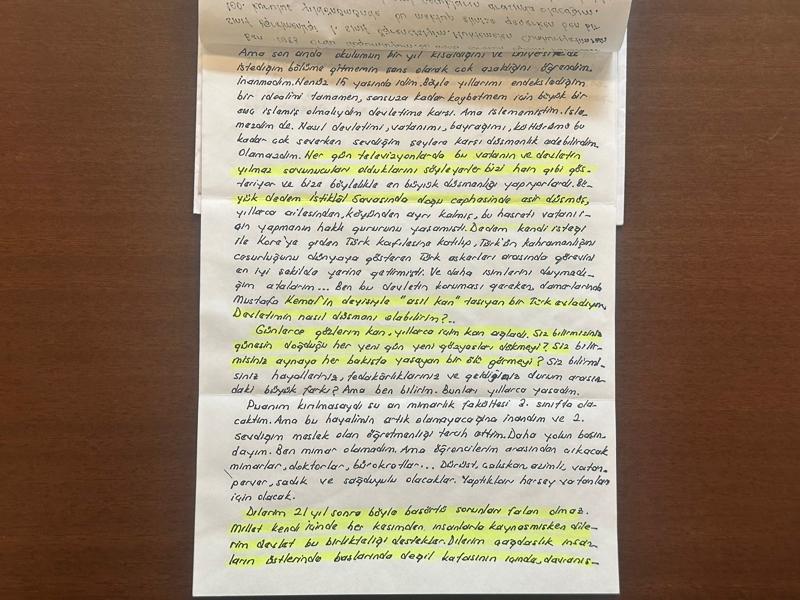 100. kuruluş yıldönümünde bu mektup sizlere geçerken ben bir
sınıf öğretmenliği 1. sınıf öğrencisiyim.
Ama son anda okulumun bir yıl kısaldığını ve üniversitede
istediğim bölüme gitmemin şans olarak çok azaldığını öğrendim.
İnanmadım. Henüz 15 yaşında idim. Böyle yıllarımı endekslediğim
bir idealimi tamamen, sonsuza kadar kaybetmem için büyük bir
suç işlemiş olmalıydım devletime karşı. Ama işlememiştim. İşle-
mezdim de. Nasıl devletimi, vatanımı, bayrağımı, kültürümü bu
kadar çok severken sevdiğim şeylere karşı düşmanlık edebilirdim.
Olamazdım. Her gün televizyonlarda bu vatanın ve devletin
yılmaz savunucuları olduklarını söyleyenler bizi hain gibi gös-
teriyor ve bize böylelikle en büyük düşmanlığı yapıyorlardı. Bü-
yük dedem İstiklâl Savaşında doğu cephesinde esir düşmüş,
yıllarca ailesinden, köyünden ayrı kalmış, bu hasreti vatanı i-
çin yapmanın haklı gururunu yaşamıştı. Dedem kendi isteği
ile Kore'ye giden Türk kafilesine katılıp, Türk'ün kahramanlığını
cesurluğunu dünyaya gösteren Türk askerleri arasında görevini
en iyi şekilde yerine getirmişti. Ve daha isimlerini duymadı-
ğım atalarım... Ben bu devletin koruması gereken, damarlarında
Mustafa Kemal'in deyişiyle "asil kan" taşıyan bir Türk evladıyım.
Devletimin nasıl düşmanı olabilirim?..
Günlerce gözlerim kan, yıllarca içim kan ağladı. Siz bilirmisiniz
güneşin doğduğu her yeni gün yeni gözyaşlar dökmeyi? Siz bilir-
misiniz aynaya her bakışta yaşayan bir ölü görmeyi? Siz bilirmi-
siniz hayalleriniz, fedakârlıklarınız ve geldiğiniz durum arasın-
daki büyük farkı? Ama ben bilirim. Bunları yıllarca yaşadım.
Puanım kırılmasaydı şu an mimarlık fakültesi 2. sınıfta ola-
caktım. Ama bu hayalimin artık olamayacağına inandım ve 2.
sevdiğim meslek olan öğretmenliği tercih ettim. Daha yolun başın-
dayım. Ben mimar olamadım. Ama öğrencilerim arasından çıkacak
mimarlar, doktorlar, bürokratlar... Dürüst, çalışkan, azimli, vatan-
perver, sadık ve sağduyulu olacaklar. Yaptıkları herşey vatanları
için olacak.
Dilerim 21 yıl sonra böyle başörtü sorunları falan olmaz.
Millet kendi içinde her kesimden insanlarla kaynaşmışken dile-
rim devlet bu birlikteliği destekler. Dilerim çağdaşlık insan-
ların üstlerinde başlarında değil kafasının içinde, davranış-